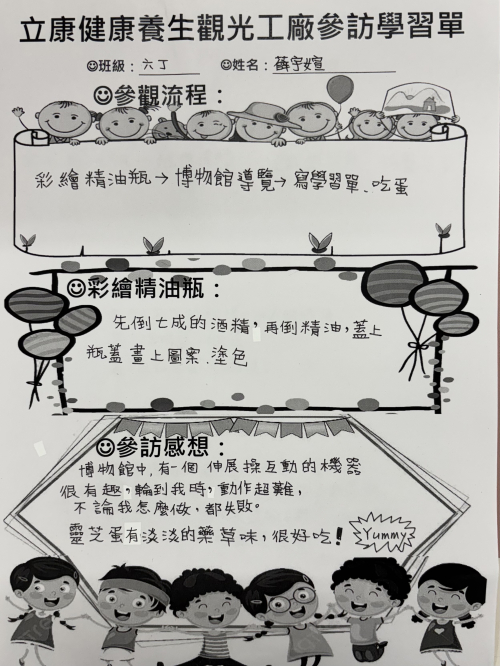 立康健康養生觀光工廠參訪學習單
☺班級：六丁 ☺姓名：蘇宇媗
☺參觀流程：
彩繪精油瓶→博物館導覽→寫學習單、吃蛋
☺彩繪精油瓶：
先倒七成的酒精，再倒精油，蓋上
瓶蓋畫上圖案、塗色
☺參訪感想：
博物館中，有一個伸展操互動的機器
很有趣，輪到我時，動作超難，
不論我怎麼做，都失敗。
靈芝蛋有淡淡的藥草味，很好吃！
Yummy